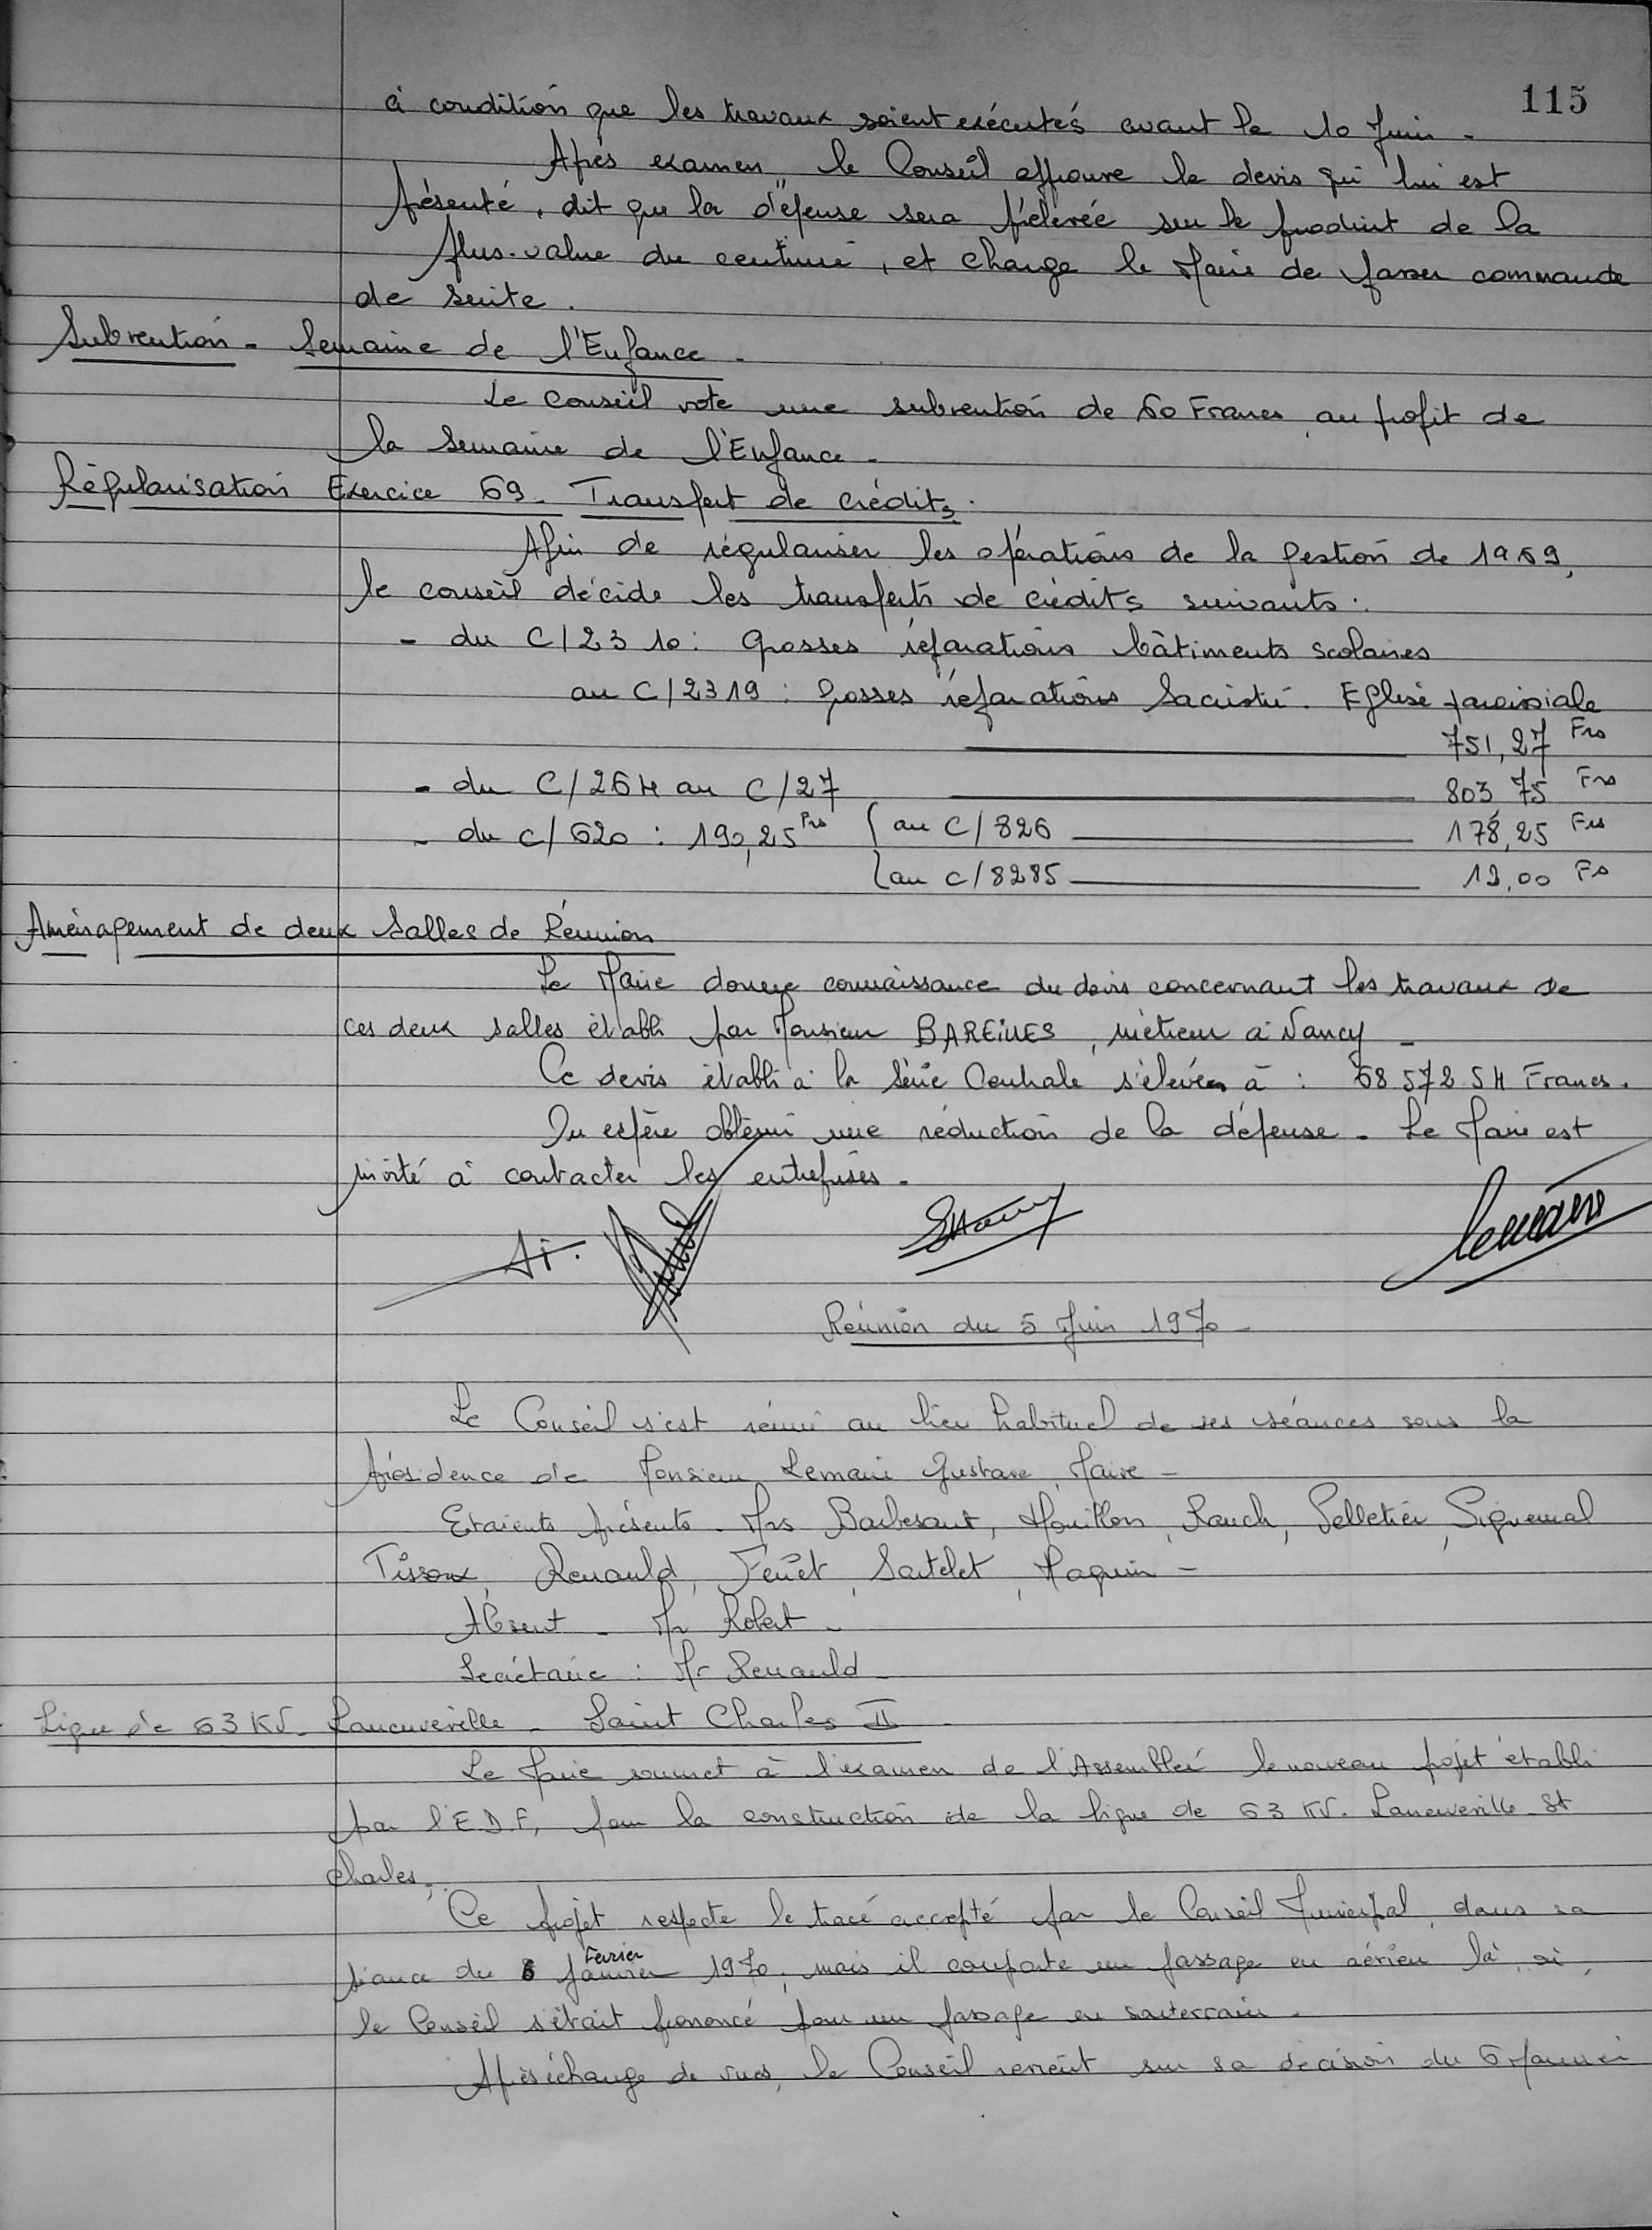 115
à condition que les travaux soient exécutés avant le 10 Juin -
Après examen, le Conseil approuve le devis qui lui est
présenté, dit que la dépense sera prélevée sur le produit de la
plus-value du centime, et charge le Maire de passer commande
de suite.
Subvention - Semaine de l'Enfance -
Le Conseil vote une subvention de 60 Francs au profit de
la Semaine de l'Enfance -
Régularisation Exercice 69 - Transfert de Crédits.
Afin de régulariser les opérations de la gestion de 1969,
le conseil décide les transferts de crédits suivants :
- du C/23 10 : Grosses réparations bâtiments scolaires
au C/2319 : grosses réparations Sacristie. Eglise paroissiale
751,27 Frs
- du C/264 au C/27 803 75 Frs
- du c/620 : 190,25 Frs ( au C/826 178,25 Frs
( au c/8285 12,00 Fs
Aménagement de deux Salles de Réunion
Le Maire donne connaissance du devis concernant les travaux de
ces deux salles établi par Monsieur BAREILLES, métreur à Nancy -
Ce devis établi à la Série Centrale s'élève à : 68 572 54 Francs.
On espère obtenir une réduction de la dépense - Le Maire est
invité à contacter les entreprises -
Lemaire
Réunion du 5 Juin 1970 -
Le Conseil s'est réuni au lieu habituel de ses séances sous la
présidence de Monsieur Lemaire Gustave, Maire -
Etaients présents - Mrs Barbesant, Houillon, Rauch, Pelletier, Signemal
Tisseux, Renauld, Feuet, Sartelet, Paquin -
Absent - Mr Robert -
Secrétaire : Mr Renauld -
Ligne de 63 KV - Laneuveville - Saint Charles II -
Le Maire soumet à l'examen de l'Assemblée le nouveau projet établi
par l'E.D.F, pour la construction de la ligne de 63 KV. Laneuveville - St
Charles.
Ce projet respecte le tracé accepté par le Conseil Municipal, dans sa
séance du 6 janvier Février 1970, mais il comporte un passage en aérien là, où,
le Conseil s'était prononcé pour un passage en souterrain -
Après échange de vues, le Conseil revient sur sa décision du 6 Janvier